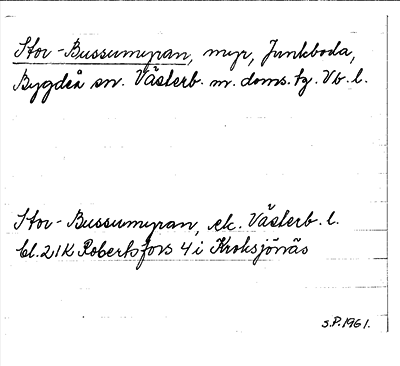 Stor-Bussumyran, myr, Junkboda,
Bygdeå sn. Västerb. m. doms. tg. Vb. l.
Stor-Bussumyran, ek. Västerb. l.
bl. 21K Robertsfors 4 i Kroksjönäs
S.P. 1961.